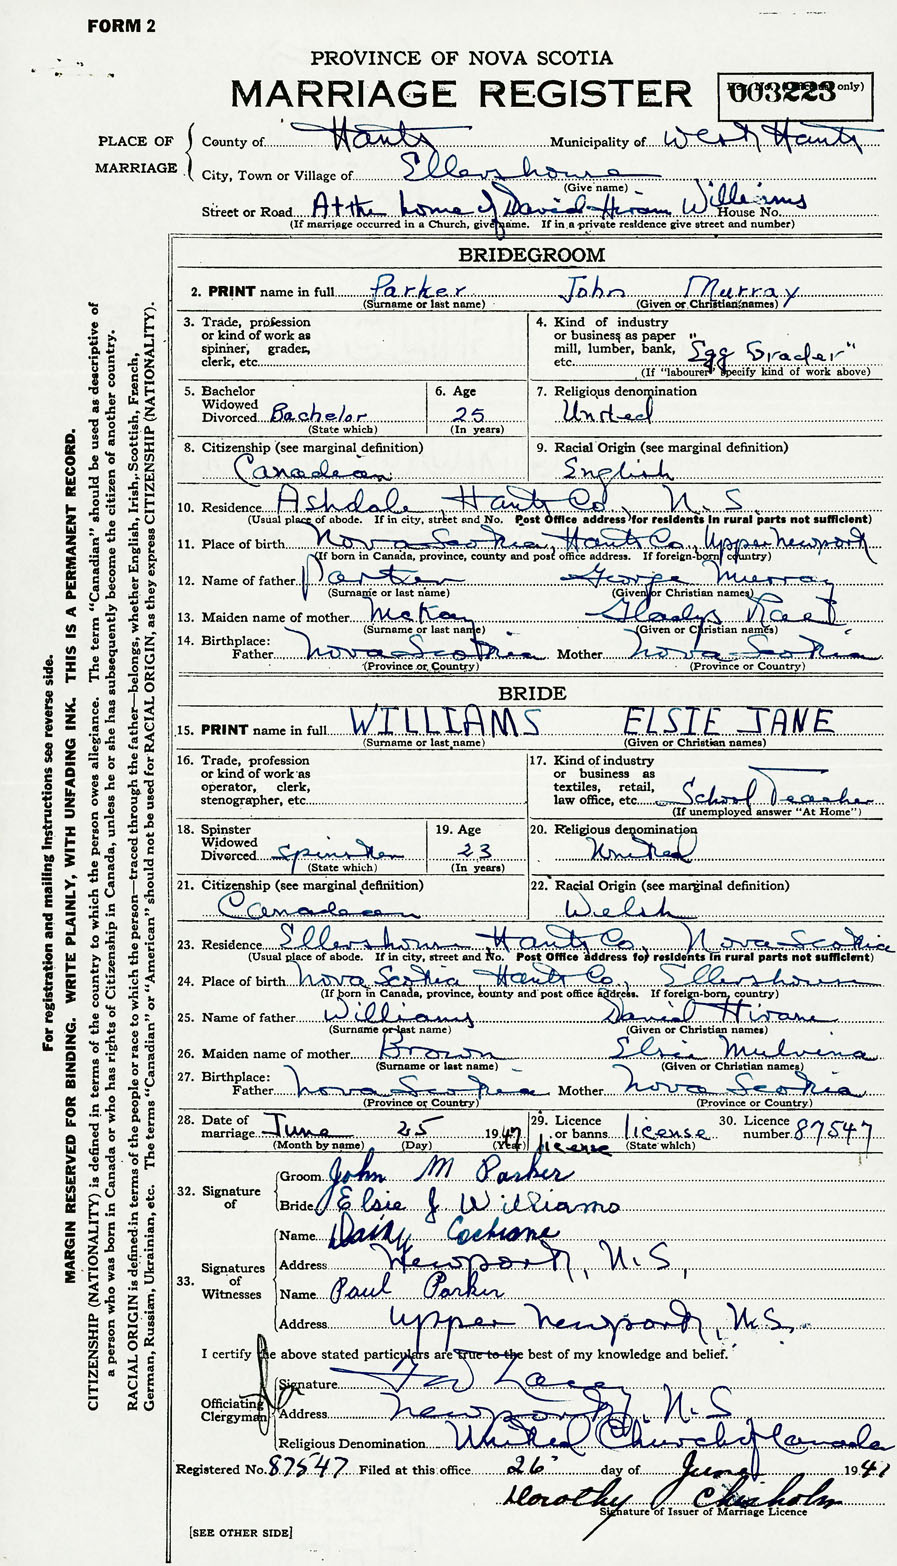 FORM 2
PROVINCE OF NOVA SCOTIA
MARRIAGE REGISTER
003223
PLACE OF MARRIAGE
County of Hants Municipality of West Hants
City, Town or Village of Ellershouse
(Give name)
Street or Road At the home of David Hiram Williams House No.
(If marriage occurred in a Church, give name. If in a private residence give street and number)
BRIDEGROOM
2. PRINT name in full Parker John Murray
(Surname or last name) (Given or Christian names)
3. Trade, profession or kind of work as spinner, grader, clerk, etc.
4. Kind of industry or business as paper mill, lumber, bank, etc. "Egg Grader"
(If "labourer" specify kind of work above)
5. Bachelor Widowed Divorced Bachelor
(State which)
6. Age 25
(In years)
7. Religious denomination United
8. Citizenship (see marginal definition) Canadian
9. Racial Origin (see marginal definition) English
10. Residence Ashdale, Hants Co., N.S.
(Usual place of abode. If in city, street and No. Post Office address for residents in rural parts not sufficient)
11. Place of birth Nova Scotia, Hants Co., Upper Newport
(If born in Canada, province, county and post office address. If foreign-born, country)
12. Name of father Parker George Murray
(Surname or last name) (Given or Christian names)
13. Maiden name of mother McKay Gladys
(Surname or last name) (Given or Christian names)
14. Birthplace:
Father Nova Scotia Mother Nova Scotia
(Province or Country) (Province or Country)
BRIDE
15. PRINT name in full WILLIAMS ELSIE JANE
(Surname or last name) (Given or Christian names)
16. Trade, profession or kind of work as operator, clerk, stenographer, etc.
17. Kind of industry or business as textiles, retail, law office, etc. School Teacher
(If unemployed answer "At Home")
18. Spinster Widowed Divorced Spinster
(State which)
19. Age 23
(In years)
20. Religious denomination United
21. Citizenship (see marginal definition) Canadian
22. Racial Origin (see marginal definition) Welsh
23. Residence Ellershouse, Hants Co., Nova Scotia
(Usual place of abode. If in city, street and No. Post Office address for residents in rural parts not sufficient)
24. Place of birth Nova Scotia Hants Co., Ellershouse
(If born in Canada, province, county and post office address. If foreign-born, country)
25. Name of father Williams David Hiram
(Surname or last name) (Given or Christian names)
26. Maiden name of mother Brown Elsie Mulvina
(Surname or last name) (Given or Christian names)
27. Birthplace:
Father Nova Scotia Mother Nova Scotia
(Province or Country) (Province or Country)
28. Date of marriage June 25 1947
(Month by name) (Day) (Year)
29. Licence or banns license
license (State which)
30. Licence number 87547
32. Signature of
Groom John M Parker
Bride Elsie J Williams
33. Signatures of Witnesses
Name Daisy Cochrane
Address Newport, N.S,
Name Paul Parker
Address Upper Newport, N.S.
I certify the above stated particulars are true to the best of my knowledge and belief.
Officiating Clergyman
Signature
Address Newport, N.S
Religious Denomination United Church of Canada
Registered No. 87547 Filed at this office 26 day of June 1947
Dorothy Chisholm
Signature of Issuer of Marriage Licence
[SEE OTHER SIDE]
For registration and mailing instructions see reverse side.
MARGIN RESERVED FOR BINDING. WRITE PLAINLY, WITH UNFADING INK. THIS IS A PERMANENT RECORD.
CITIZENSHIP (NATIONALITY) is defined in terms of the country to which the person owes allegiance. The term "Canadian" should be used as descriptive of
a person who was born in Canada or who has rights of Citizenship in Canada, unless he or she has subsequently become the citizen of another country.
RACIAL ORIGIN is defined in terms of the people or race to which the person—traced through the father—belongs, whether English, Irish, Scottish, French,
German, Russian, Ukrainian, etc. The terms "Canadian" or "American" should not be used for RACIAL ORIGIN, as they express CITIZENSHIP (NATIONALITY).